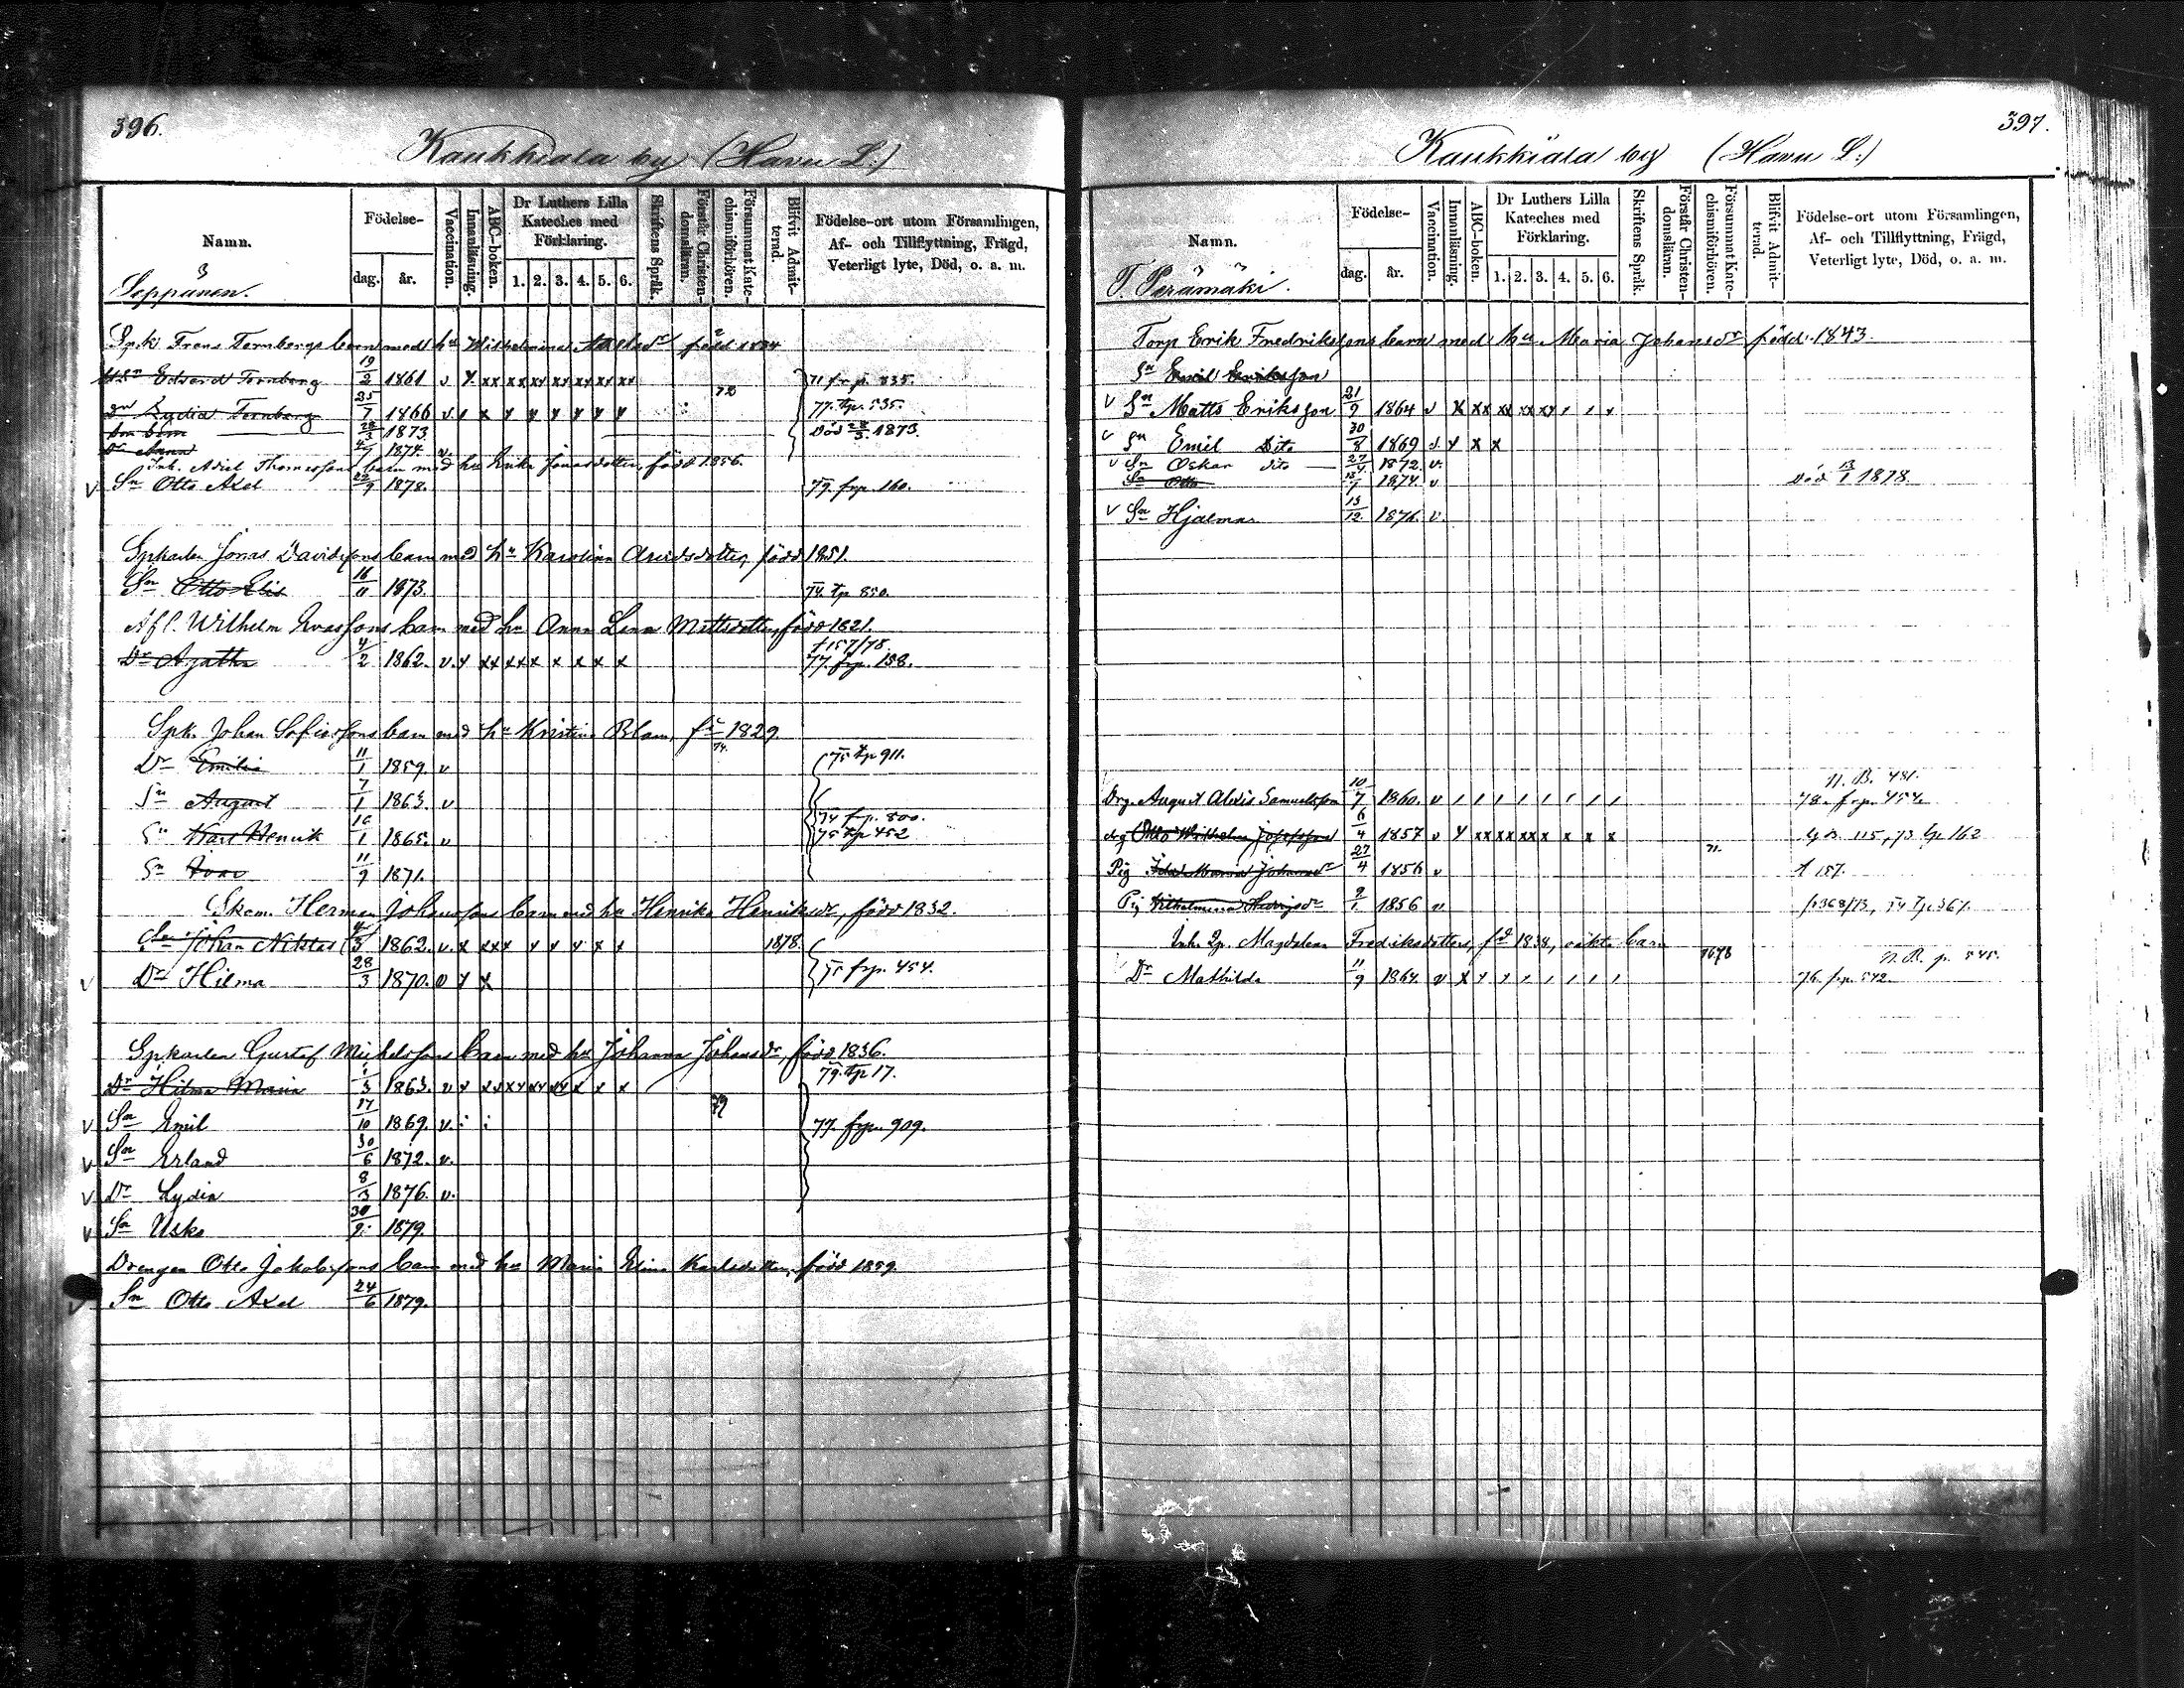 396.
Kaukkiala by (Havu L:)
Namn.
Födelse-
dag.
år.
Vaccination.
Innanläsning.
ABC-boken.
Dr Luthers Lilla Kateches med Förklaring.
1. 2. 3. 4. 5. 6.
Skriftens Språk.
Förstår Christendomsläran.
Försummat Katechismiförhören.
Blifvit Admitterad.
Födelse-ort utom Församlingen, Af- och Tillflyttning, Frägd, Veterligt lyte, Död, o. a. m.
3
Seppänen.
Spk Frans Ternbergs barn med hu Wilhelmina född
Edvard Ternberg 19/2 1861 v x xx xx xx xx xx xx xx 71 frp. 535.
Dr Lydia Ternberg 25/7 1866 v 77. tp. 535.
28/3 1873 Död 28/3 1873.
Dr Anna 1874 v.
Inh. Axel Thomassons barn med hu Erika Jonasdotter, född 1856.
V Sn Otto Axel 22/7 1878. 79. frp. 160.
Spkarlen Jonas Davidssons barn med hu Karolina Arvidsdotter, född 1851.
Sn Otto Elis 16/11 1873. 74. tp 850.
Afl. Wilhelm Ivassons barn med hu Anna Lena Mattsdotter, född 1821.
Dr Agatha 4/2 1862. v. x xx xx x x x x x † 157/78 77. frp. 158.
Spk. Johan Sofiassons barn med hu Kristina Blom, fd 1829.
Dr Emilia 11/1 1859. v 75 tp 911.
Sn August 7/1 1863. v
Sn Karl Henrik 16/1 1865. v 74 frp. 800. 75 tp 452
Sn Ivar 11/9 1871.
Skom. Herman Johanssons barn med hu Henrika Henriksdr, född 1832.
Sn Johan Nikolai 3 1862. v. x xxx x x x x x 1878.
V Dr Hilma 28/3 1870. v x x 75 frp. 454.
Spkarlen Gustaf Mickelssons barn med hu Johanna Johansdr, född 1836.
Dr Hilma Maria 1/3 1863. v x xx xx xx xx x x x 79. tp 17.
V Sn Emil 17/10 1869. v. : : 79 77. frp. 909.
V Sn Erland 30/6 1872. v.
V Dr Lydia 8/3 1876. v.
V Sn Usko 30/9 1879.
Drengen Otto Jakobssons barn med hu Maria Elina Karlsdotter, född 1859.
V Sn Otto Axel 24/6 1879.
397.
Kaukkiala by (Havu L:)
Namn.
Födelse-
dag.
år.
Vaccination.
Innanläsning.
ABC-boken.
Dr Luthers Lilla Kateches med Förklaring.
1. 2. 3. 4. 5. 6.
Skriftens Språk.
Förstår Christendomsläran.
Försummat Katechismiförhören.
Blifvit Admitterad.
Födelse-ort utom Församlingen, Af- och Tillflyttning, Frägd, Veterligt lyte, Död, o. a. m.
T. Perämäki.
Torp Erik Fredrikssons barn med hu Maria Johansdr född 1843.
Sn Emil Eriksson
V Sn Matts Eriksson 21/9 1864 v x xx xx xx
V Sn Emil Dito 30/8 1869 v. x x x
V Sn Oskar dito 27/4 1872. v.
Sn Otto 13/7 1874. v Död 13/1 1878.
V Sn Hjalmar 15/12 1876. v.
Drg. August Alexis Samuelsson 10/7 1860. v N. B. 481. 78. frp. 454.
Drg Otto Wilhelm Josefsson 6/4 1857 v x xx xx xx x x x x 115, 73 tp 162
Pig Ida Maria Johansdr 27/4 1856 v 71. † 157.
Pig Wilhelmina 9/1 1856 v 368/73, 74 tp. 361.
Inh. Qp. Magdalena Fredriksdotters, fd 1838, oäkta barn
V Dr Mathilda 11/9 1864. v x x 1678 N. B. p. 545. 76. frp. 542.